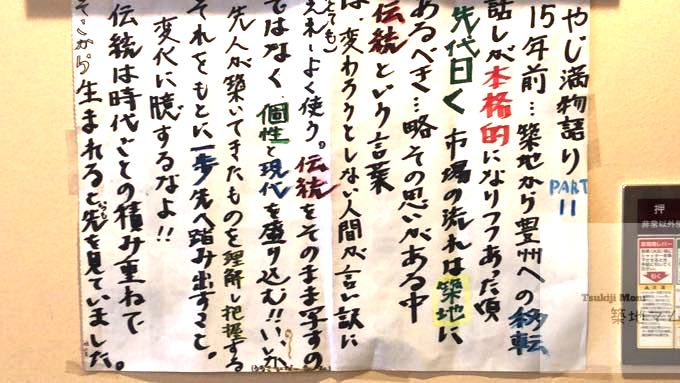 やじ満物語り PART 11
15年前…築地から豊州への移転
話しが本格的になりつつあった頃
先代曰く 市場の流れは築地に
あるべき…略その思いがある中
伝統という言葉
は、変わろうとしない人間が言い訳に
よく使う。伝統をそのまま写すの
ではなく 個性と現代を盛り込む!!いいか
先人が築いてきたものを理解し把握する
それをもとに一歩先へ踏み出すこと。
変化に臆するなよ!!
伝統は時代ごとの積み重ねで
生まれると先を見ていました。
押
非常以外
引く
Tsukiji Mom
築地マム